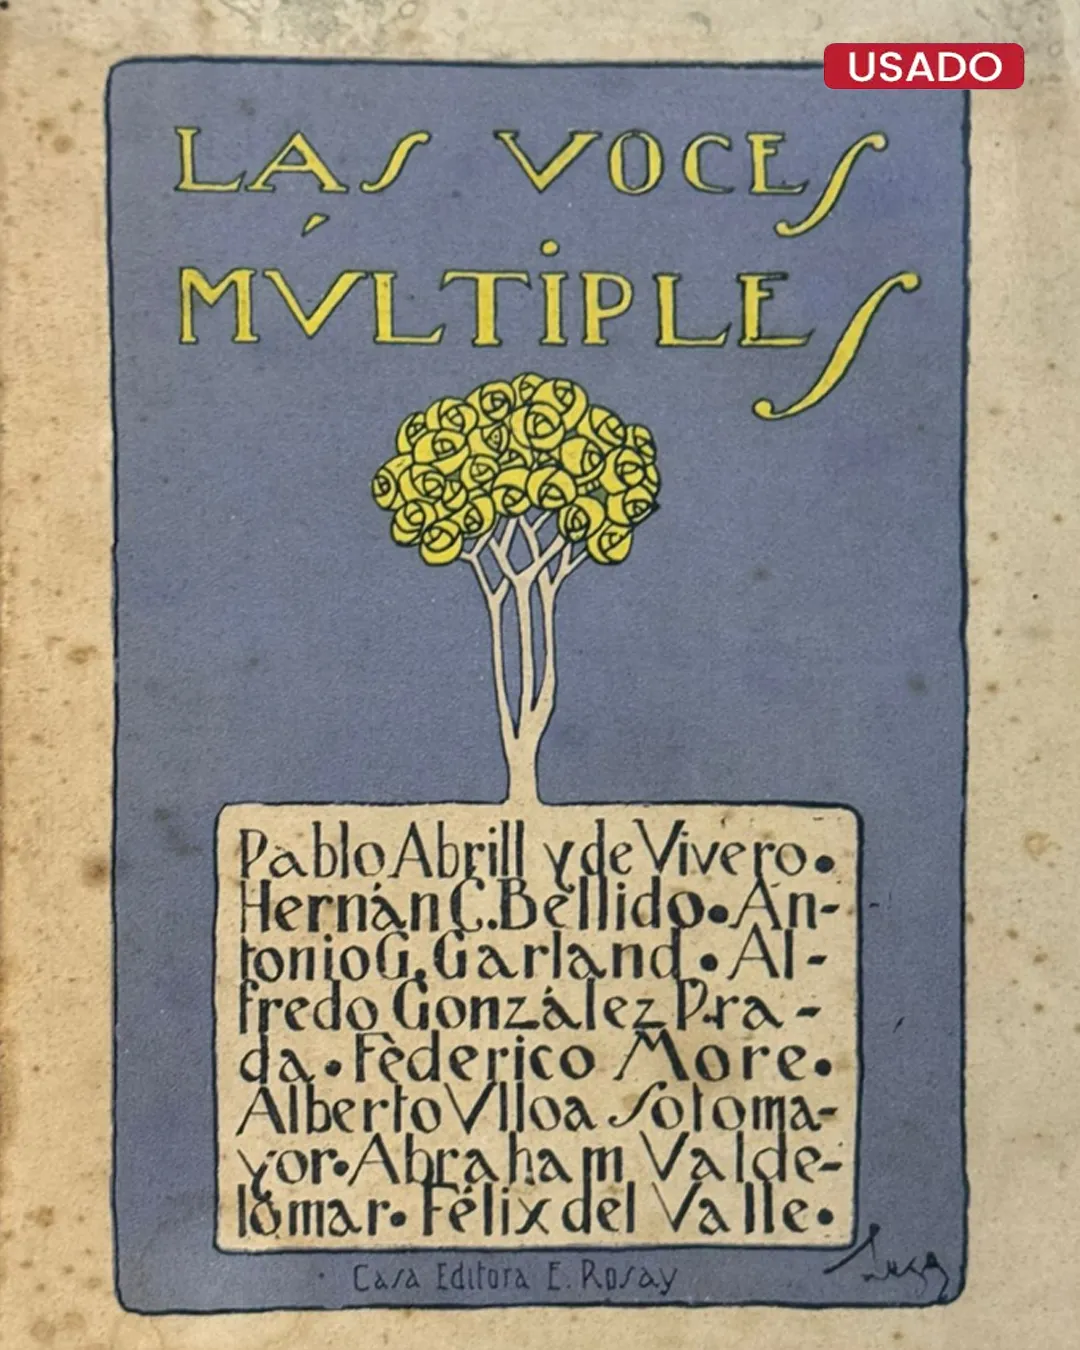 USADO
LAS VOCES
MÚLTIPLES
Pablo Abrill y de Vivero •
Hernán C. Bellido • An-
tonio G. Garland • Al-
fredo González Pra-
da • Féderico More •
Alberto Ulloa Sotoma-
yor • Abraham Valde-
lomar • Félix del Valle •
Casa Editora E. Rosay